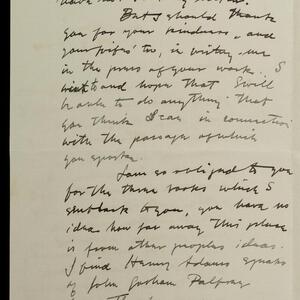 But I should thank
you for your kindness, and
your wife's too, in writing me
in the press of your work. I
and hope that I will
be able to do anything that
you think I can in connection
with the passage of which
you spoke.
I am so obliged to you
for the three books which I
sent back to you, you have no
idea how far away this place
is from other peoples ideas.
I find Henry Adams speaks
of John Gorham Palfrey